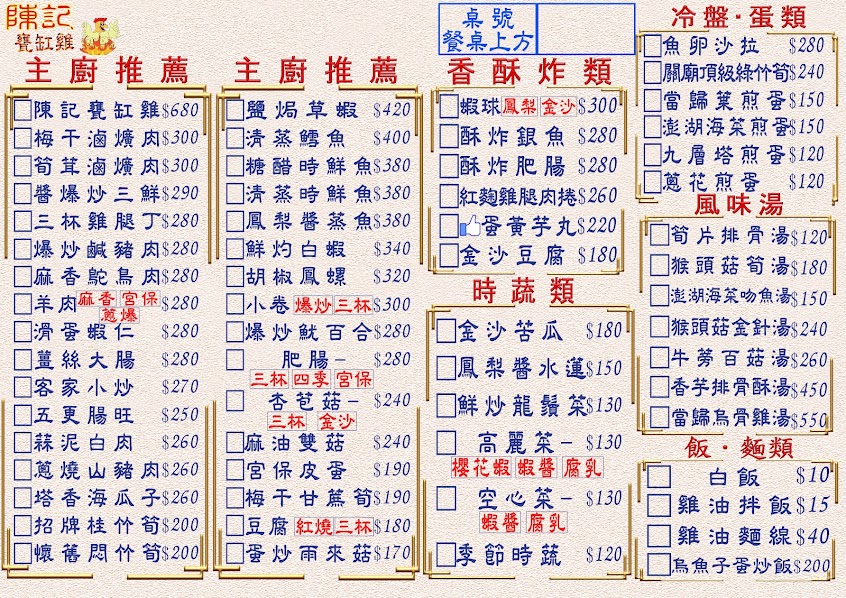 陳記
甕缸雞
桌號
餐桌上方
主廚推薦
陳記甕缸雞$680
梅干滷爌肉$300
筍茸滷爌肉$300
醬爆炒三鮮$290
三杯雞腿丁$280
爆炒鹹豬肉$280
麻香鴕鳥肉$280
羊肉 麻香 宮保 蔥爆 $280
滑蛋蝦仁 $280
薑絲大腸 $280
客家小炒 $270
五更腸旺 $250
蒜泥白肉 $260
蔥燒山豬肉$260
塔香海瓜子$260
招牌桂竹筍$200
懷舊悶竹筍$200
主廚推薦
鹽焗草蝦 $420
清蒸鱈魚 $400
糖醋時鮮魚$380
清蒸時鮮魚$380
鳳梨醬蒸魚$380
鮮灼白蝦 $340
胡椒鳳螺 $320
小卷 爆炒 三杯 $300
爆炒魷百合$280
肥腸- $280
三杯 四季 宮保
杏苞菇- $240
三杯 金沙
麻油雙菇 $240
宮保皮蛋 $190
梅干甘蔗筍$190
豆腐 紅燒 三杯 $180
蛋炒雨來菇$170
香酥炸類
蝦球 鳳梨 金沙 $300
酥炸銀魚 $280
酥炸肥腸 $280
紅麴雞腿肉捲$260
蛋黃芋丸$220
金沙豆腐 $180
時蔬類
金沙苦瓜 $180
鳳梨醬水蓮$150
鮮炒龍鬚菜$130
高麗菜- $130
櫻花蝦 蝦醬 腐乳
空心菜- $130
蝦醬 腐乳
季節時蔬 $120
冷盤·蛋類
魚卵沙拉 $280
關廟頂級綠竹筍$240
當歸葉煎蛋$150
澎湖海菜煎蛋$150
九層塔煎蛋$120
蔥花煎蛋 $120
風味湯
筍片排骨湯$120
猴頭菇筍湯$180
澎湖海菜吻魚湯$150
猴頭菇金針湯$240
牛蒡百菇湯$260
香芋排骨酥湯$450
當歸烏骨雞湯$550
飯·麵類
白飯 $10
雞油拌飯$15
雞油麵線$40
烏魚子蛋炒飯$200